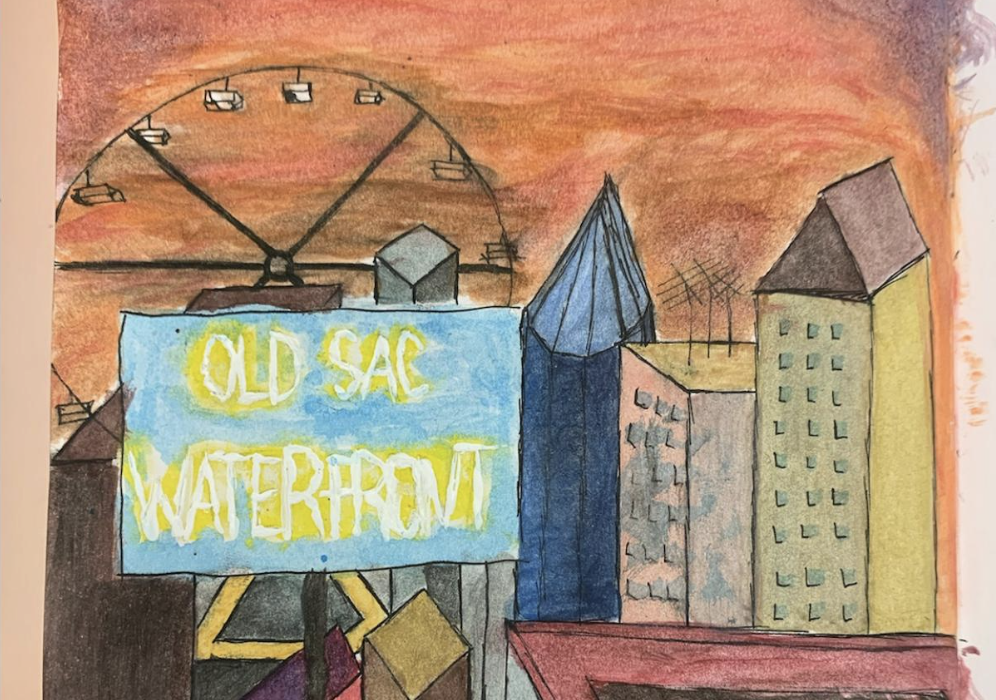 OLD SAC
WATERFRONT